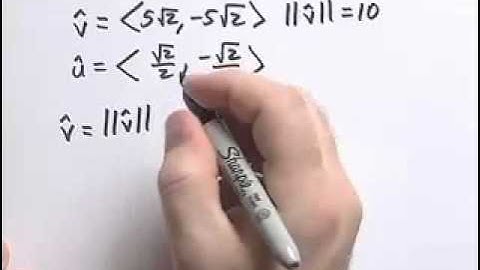 v̂ = < 5√2, -5√2 > ||v̂|| = 10
û = < √2/2, -√2/ >
v̂ = ||v̂||
Sharpie